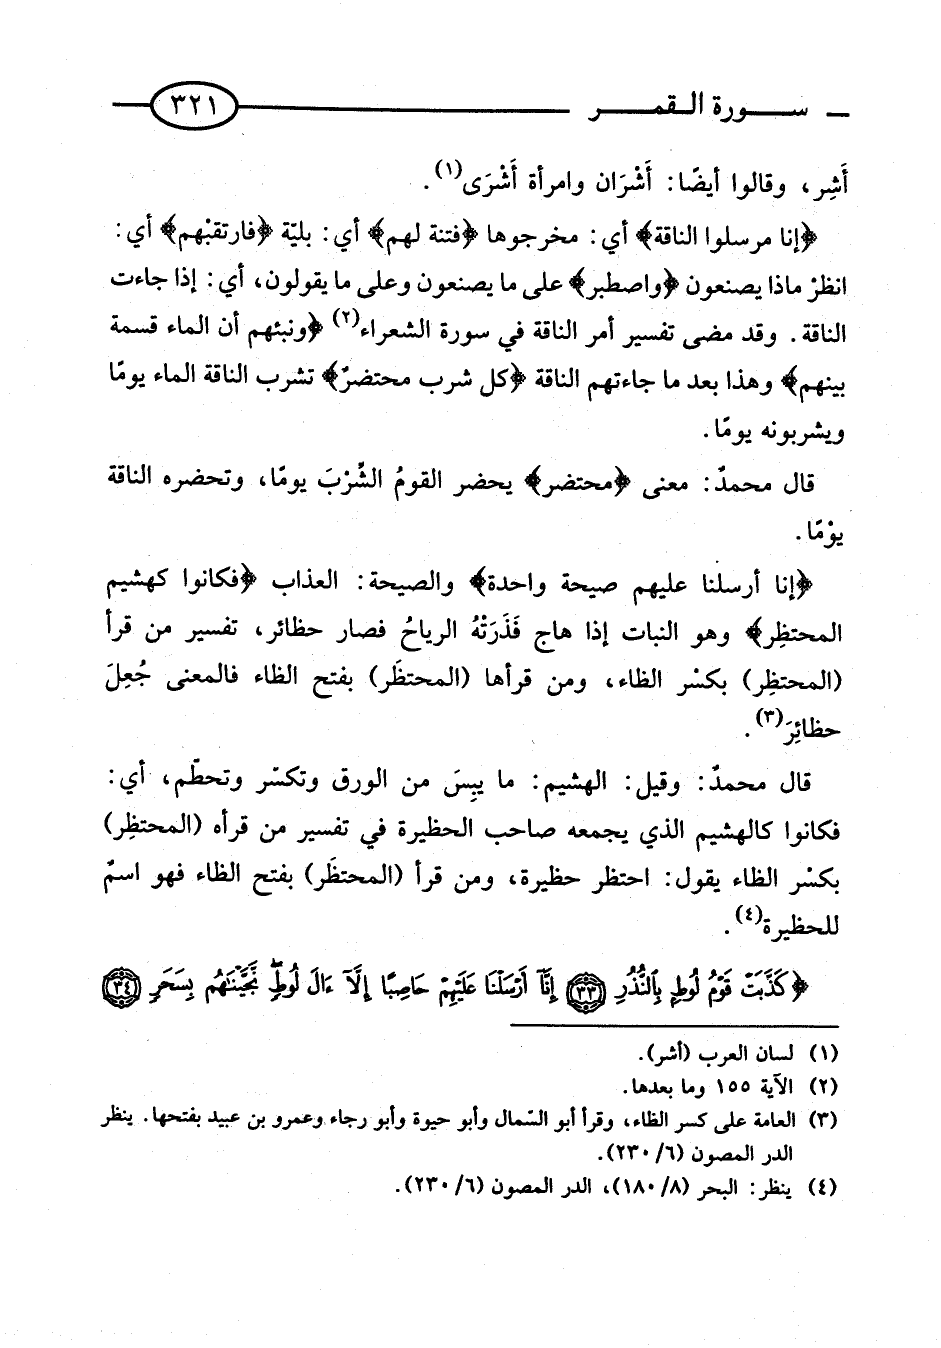 ـ سـورة الـقمـر ٣٢١
أَشِر، وقالوا أيضًا: أَشْرَان وامرأة أَشْرَى(١).
﴿إنا مرسلوا الناقة﴾ أي: مخرجوها ﴿فتنة لهم﴾ أي: بليّة ﴿فارتقبْهم﴾ أي:
انظرْ ماذا يصنعون ﴿واصطبر﴾ على ما يصنعون وعلى ما يقولون، أي: إذا جاءت
الناقة. وقد مضى تفسير أمر الناقة في سورة الشعراء(٢) ﴿ونبئهم أن الماء قسمة
بينهم﴾ وهذا بعد ما جاءتهم الناقة ﴿كل شرب محتضرٌ﴾ تشرب الناقة الماء يومًا
ويشربونه يومًا.
قال محمدٌ: معنى ﴿محتضر﴾ يحضر القومُ الشِّرْبَ يومًا، وتحضره الناقة
يوْمًا.
﴿إنا أرسلنا عليهم صيحة واحدة﴾ والصيحة: العذاب ﴿فكانوا كهشيم
المحتظِر﴾ وهو النبات إذا هاج فَذَرَتْهُ الرياحُ فصار حظائر، تفسير من قرأ
(المحتظِر) بكسْر الظاء، ومن قرأها (المحتظَر) بفتح الظاء فالمعنى جُعِلَ
حظائِرَ(٣).
قال محمدٌ: وقيل: الهشيم: ما يبِسَ من الورق وتكسّر وتحطّم، أي:
فكانوا كالهشيم الذي يجمعه صاحب الحظيرة في تفسير من قرأه (المحتظِر)
بكسْر الظاء يقول: احتظر حظيرة، ومن قرأ (المحتظَر) بفتح الظاء فهو اسمٌ
للحظيرة(٤).
﴿كَذَّبَتْ قَوْمُ لُوطٍ بِٱلنُّذُرِ ٣٣ إِنَّآ أَرْسَلْنَا عَلَيْهِمْ حَاصِبًا إِلَّآ ءَالَ لُوطٍ نَّجَّيْنَٰهُم بِسَحَرٍ ٣٤
(١) لسان العرب (أشر).
(٢) الآية ١٥٥ وما بعدها.
(٣) العامة على كسر الظاء، وقرأ أبو السّمال وأبو حيوة وأبو رجاء وعمرو بن عبيد بفتحها. ينظر
الدر المصون (٢٣٠/٦).
(٤) ينظر: البحر (١٨٠/٨)، الدر المصون (٢٣٠/٦).